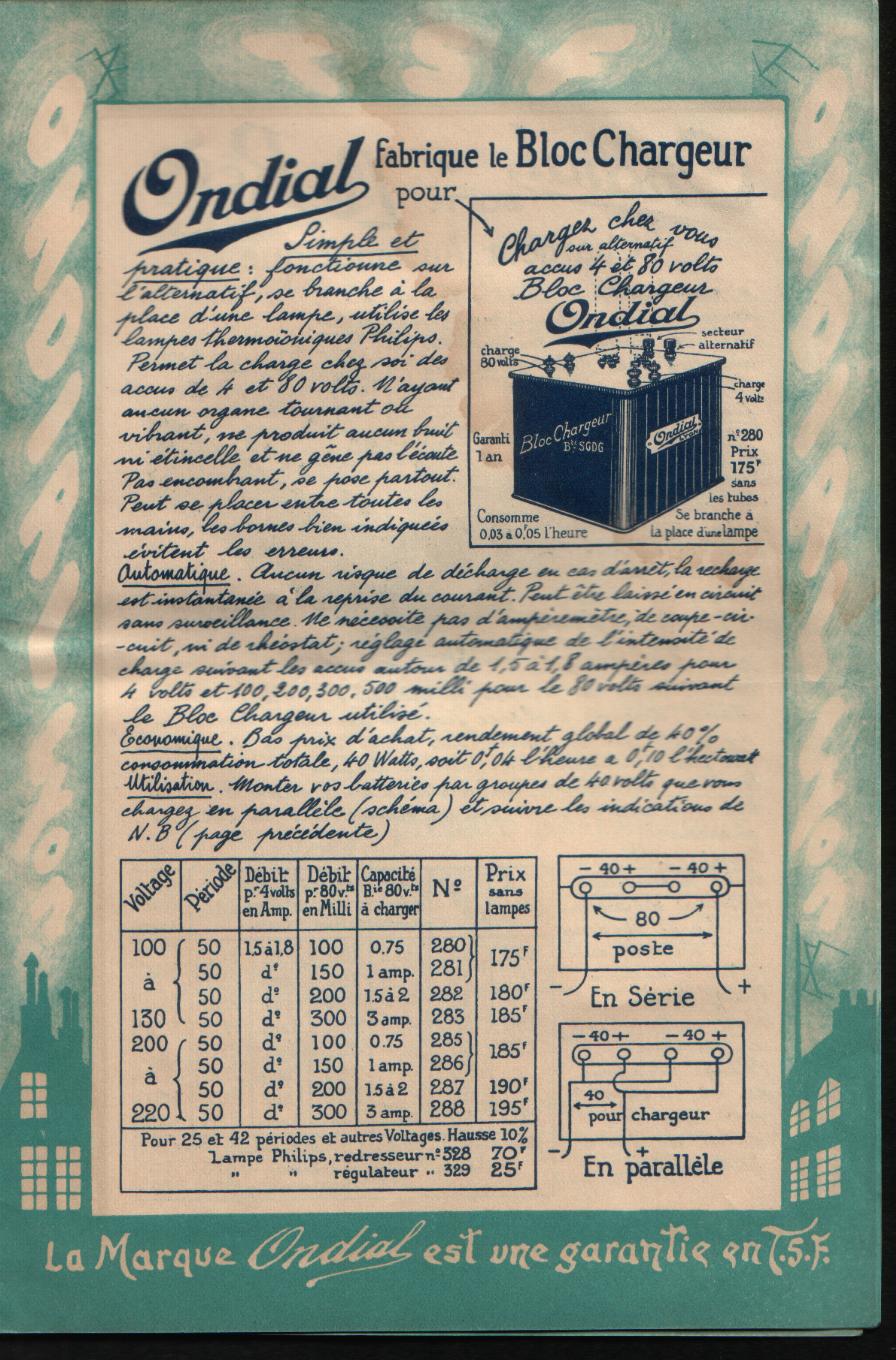 T S F
Ondial fabrique le Bloc Chargeur
pour
Simple et
pratique : fonctionne sur
l'alternatif, se branche à la
place d'une lampe, utilise les
lampes thermoïoniques Philips.
Permet la charge chez soi des
accus de 4 et 80 volts. N'ayant
aucun organe tournant ou
vibrant, ne produit aucun bruit
ni étincelle et ne gêne pas l'écoute
Pas encombrant, se pose partout.
Peut se placer entre toutes les
mains, les bornes bien indiquées
évitent les erreurs.
Chargez chez vous
sur alternatif
accus 4 et 80 volts
Bloc Chargeur
Ondial
secteur
alternatif
charge
80 volts
charge
4 volts
Garanti
1 an
Bloc Chargeur
Bté SGDG
Ondial
Lyon
nº 280
Prix
175F
sans
les tubes
Consomme
0,03 à 0F,05 l'heure
Se branche à
la place d'une lampe
Automatique. Aucun risque de décharge en cas d'arrêt, la recharge
est instantanée à la reprise du courant. Peut être laissé en circuit
sans surveillance. Ne nécessite pas d'ampèremètre, de coupe-cir-
-cuit, ni de rhéostat ; réglage automatique de l'intensité de
charge suivant les accus autour de 1,5 à 1,8 ampères pour
4 volts et 100, 200, 300, 500 milli pour le 80 volts suivant
le Bloc Chargeur utilisé.
Economique. Bas prix d'achat, rendement global de 40%
consommation totale, 40 Watts, soit 0F,04 l'heure à 0F,10 l'hectowatt
Utilisation. Monter vos batteries par groupes de 40 volts que vous
chargez en parallèle (schéma) et suivre les indications de
N.B (page précédente)
Voltage Période Débit pr 4 volts en Amp. Débit pr 80 v.ts en Milli Capacité Bie 80 v.ts à charger Nº Prix sans lampes
100 50 1.5 à 1,8 100 0.75 280 175F
à 50 dº 150 1 amp. 281
50 dº 200 1.5 à 2 282 180F
130 50 dº 300 3 amp. 283 185F
200 50 dº 100 0.75 285 185F
à 50 dº 150 1 amp. 286
50 dº 200 1.5 à 2 287 190F
220 50 dº 300 3 amp. 288 195F
Pour 25 et 42 périodes et autres Voltages. Hausse 10%
Lampe Philips, redresseur nº 328 70F
" " régulateur " 329 25F
- 40 + - 40 +
80
poste
- En Série +
- 40 + - 40 +
40
pour chargeur
- +
En parallèle
La Marque Ondial est une garantie en T.S.F.